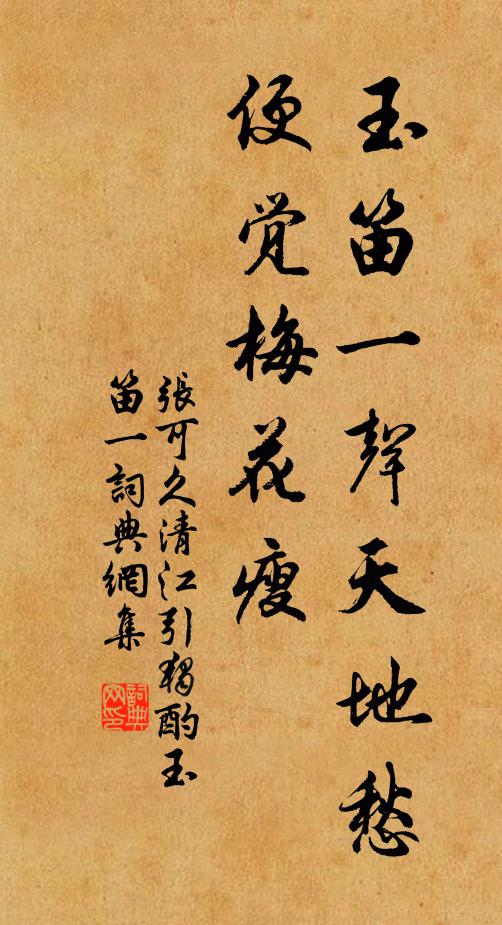 玉笛一聲天地愁
便觉梅花瘦
張可久清江引獨酌玉
笛一詞典網集
詞典
网印